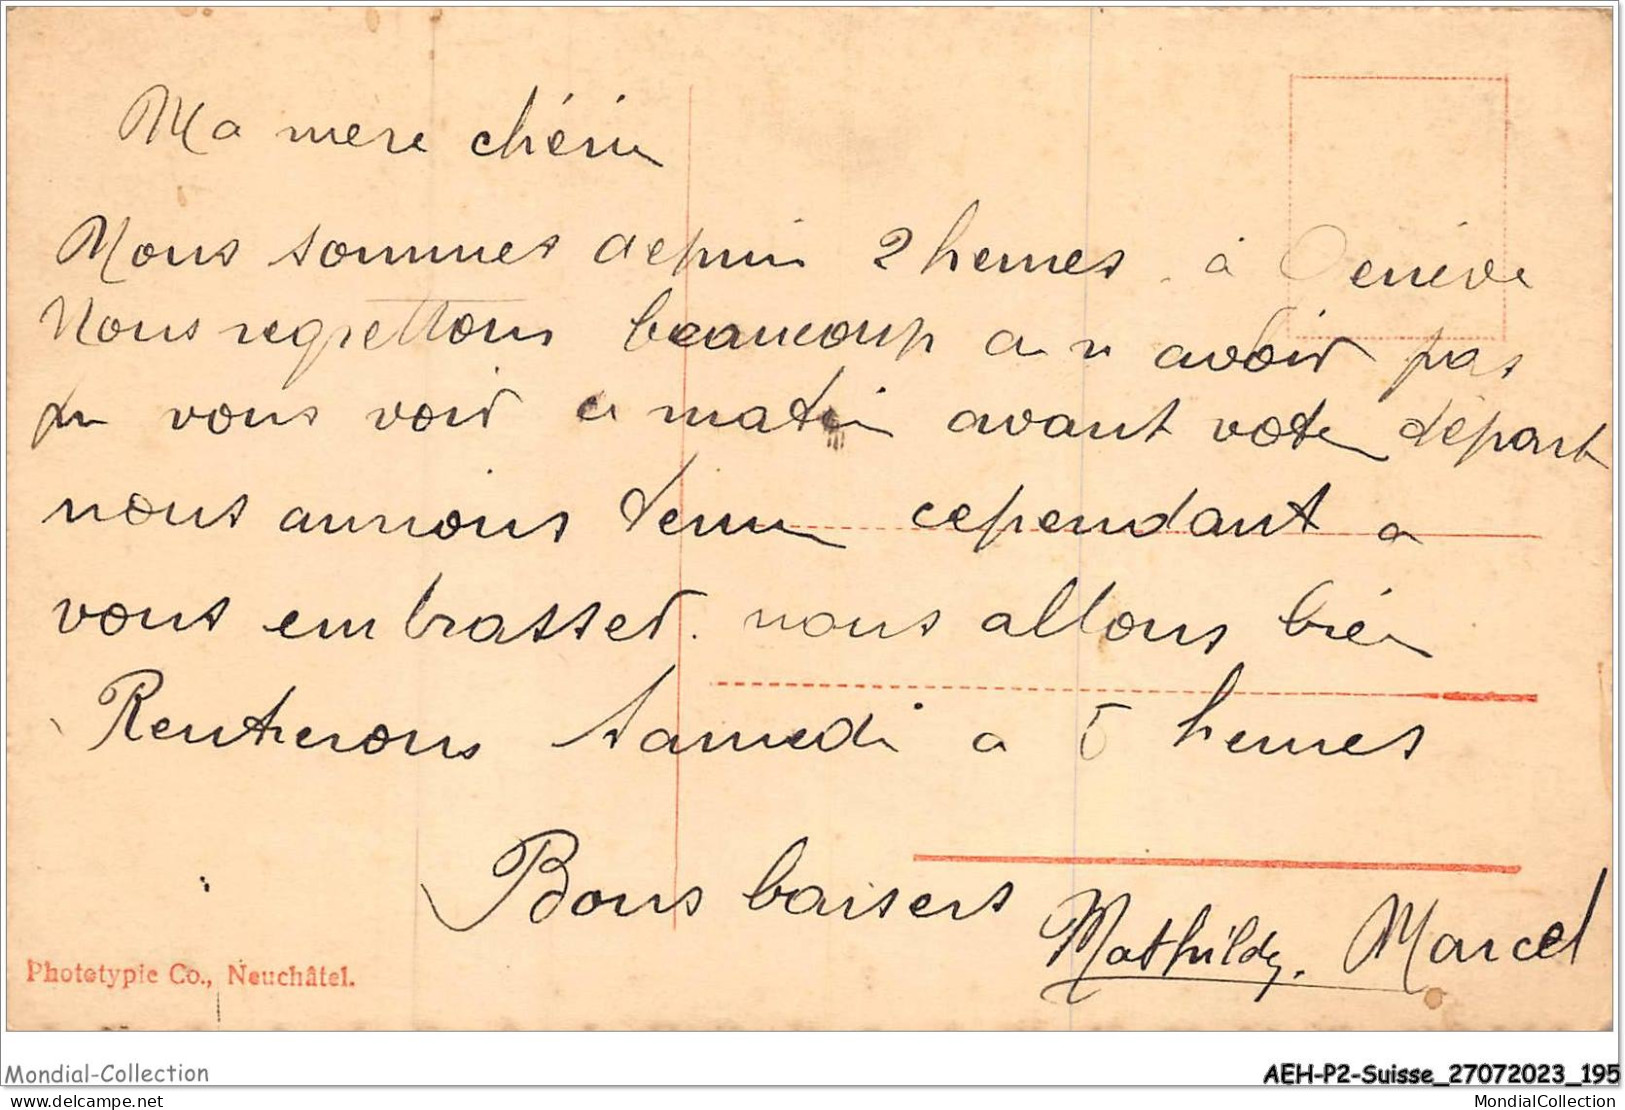 Ma mere chérie
Nous sommes depuis 2 heures à Genève
Nous regrettons beaucoup de n avoir pas
pu vous voir ce matin avant votre départ
nous aurions tenu cependant a
vous embrasser. nous allons bien
Rentrerons samedi a 5 heures
Bons baisers
Mathilde. Marcel
Phototypie Co., Neuchâtel.
Mondial-Collection
AEH-P2-Suisse_27072023_195
delcampe.net
MondialCollection